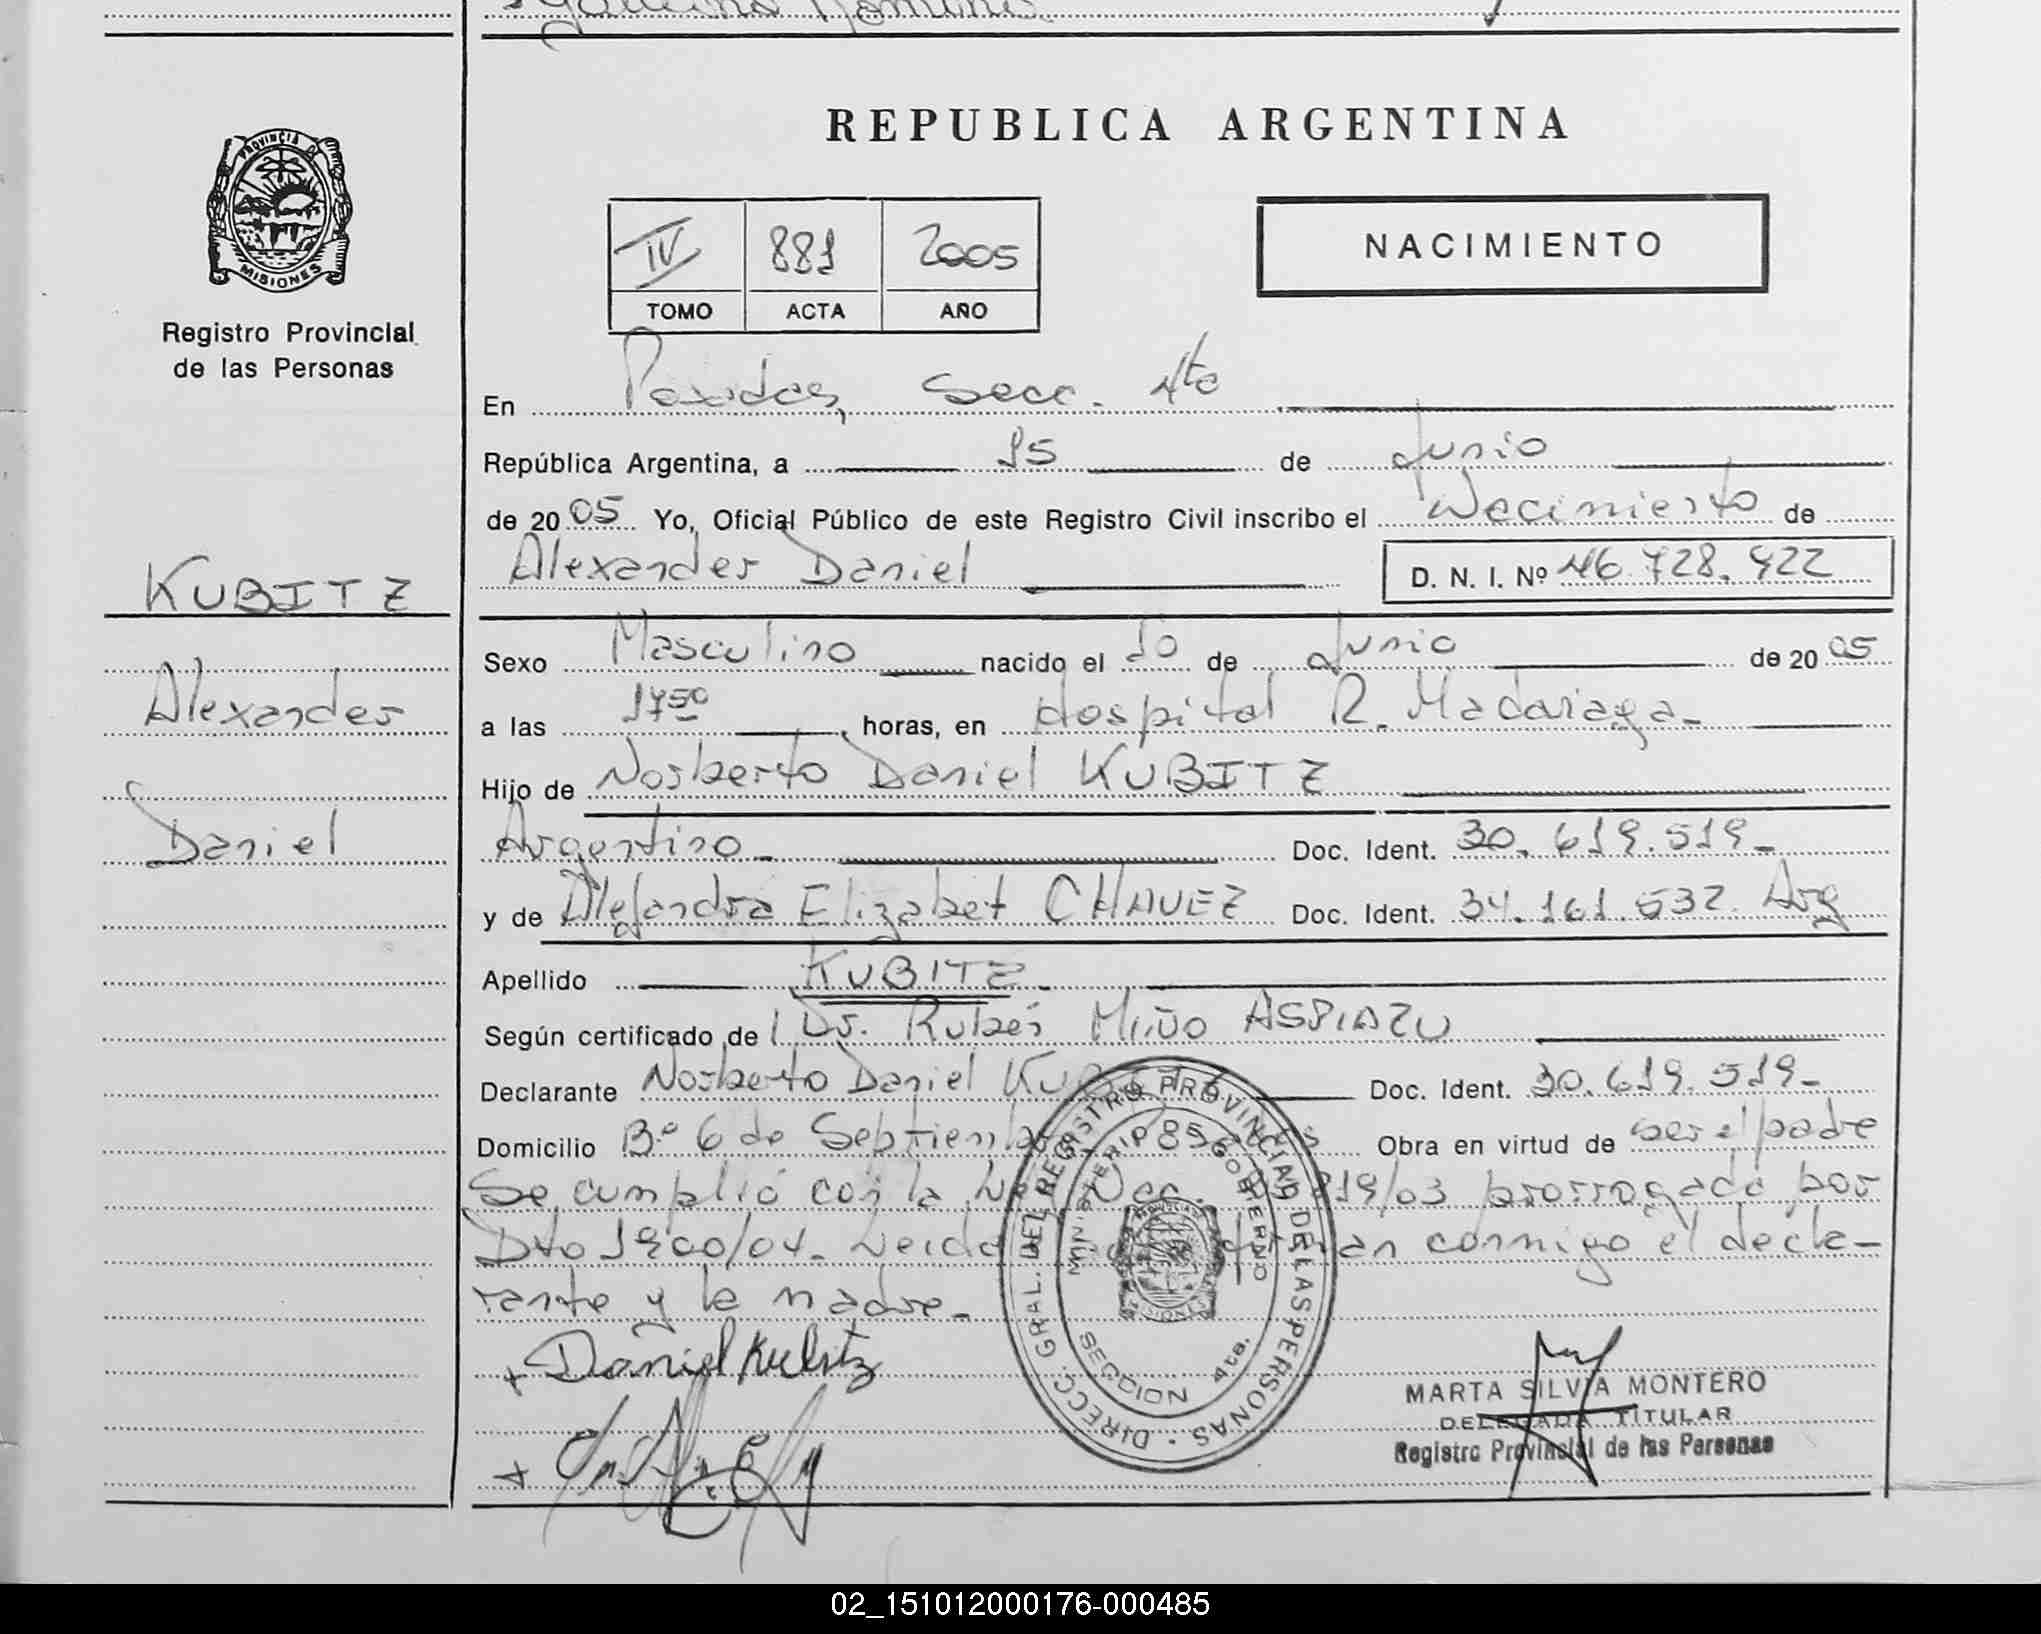 REPUBLICA ARGENTINA
PROVINCIA DE
MISIONES
Registro Provincial
de las Personas
IV 881 2005
TOMO ACTA AÑO
NACIMIENTO
En Posadas, Secc. 4ta
República Argentina, a 15 de Junio
de 2005 Yo, Oficial Público de este Registro Civil inscribo el Nacimiento de
Alexander Daniel D. N. I. Nº 46.728.422
KUBITZ
Alexander
Daniel
Sexo Masculino nacido el 10 de Junio de 2005
a las 17 50, horas, en Hospital R. Madariaga-
Hijo de Norberto Daniel KUBITZ
Argentino- Doc. Ident. 30.619.519-
y de Alejandra Elizabet CHAVEZ Doc. Ident. 34.161.532. Arg
Apellido KUBITZ.
Según certificado de Dr. Rubén Miño ASPIAZU
Declarante Norberto Daniel KUBITZ Doc. Ident. 30.619.519-
Domicilio Bº 6 de Septiembre Obra en virtud de ser el padre
Se cumplió con la 819/03 prorrogado por
Dto 1900/04- Leida conmigo el decla-
rante y la madre-
DIRECC. GRAL. DEL REGISTRO PROVINCIAL DE LAS PERSONAS
MINISTERIO GOBIERNO
SECCION 4ta.
MISIONES
Daniel Kubitz
MARTA SILVIA MONTERO
DELEGADA TITULAR
Registro Provincial de las Personas
02_151012000176-000485